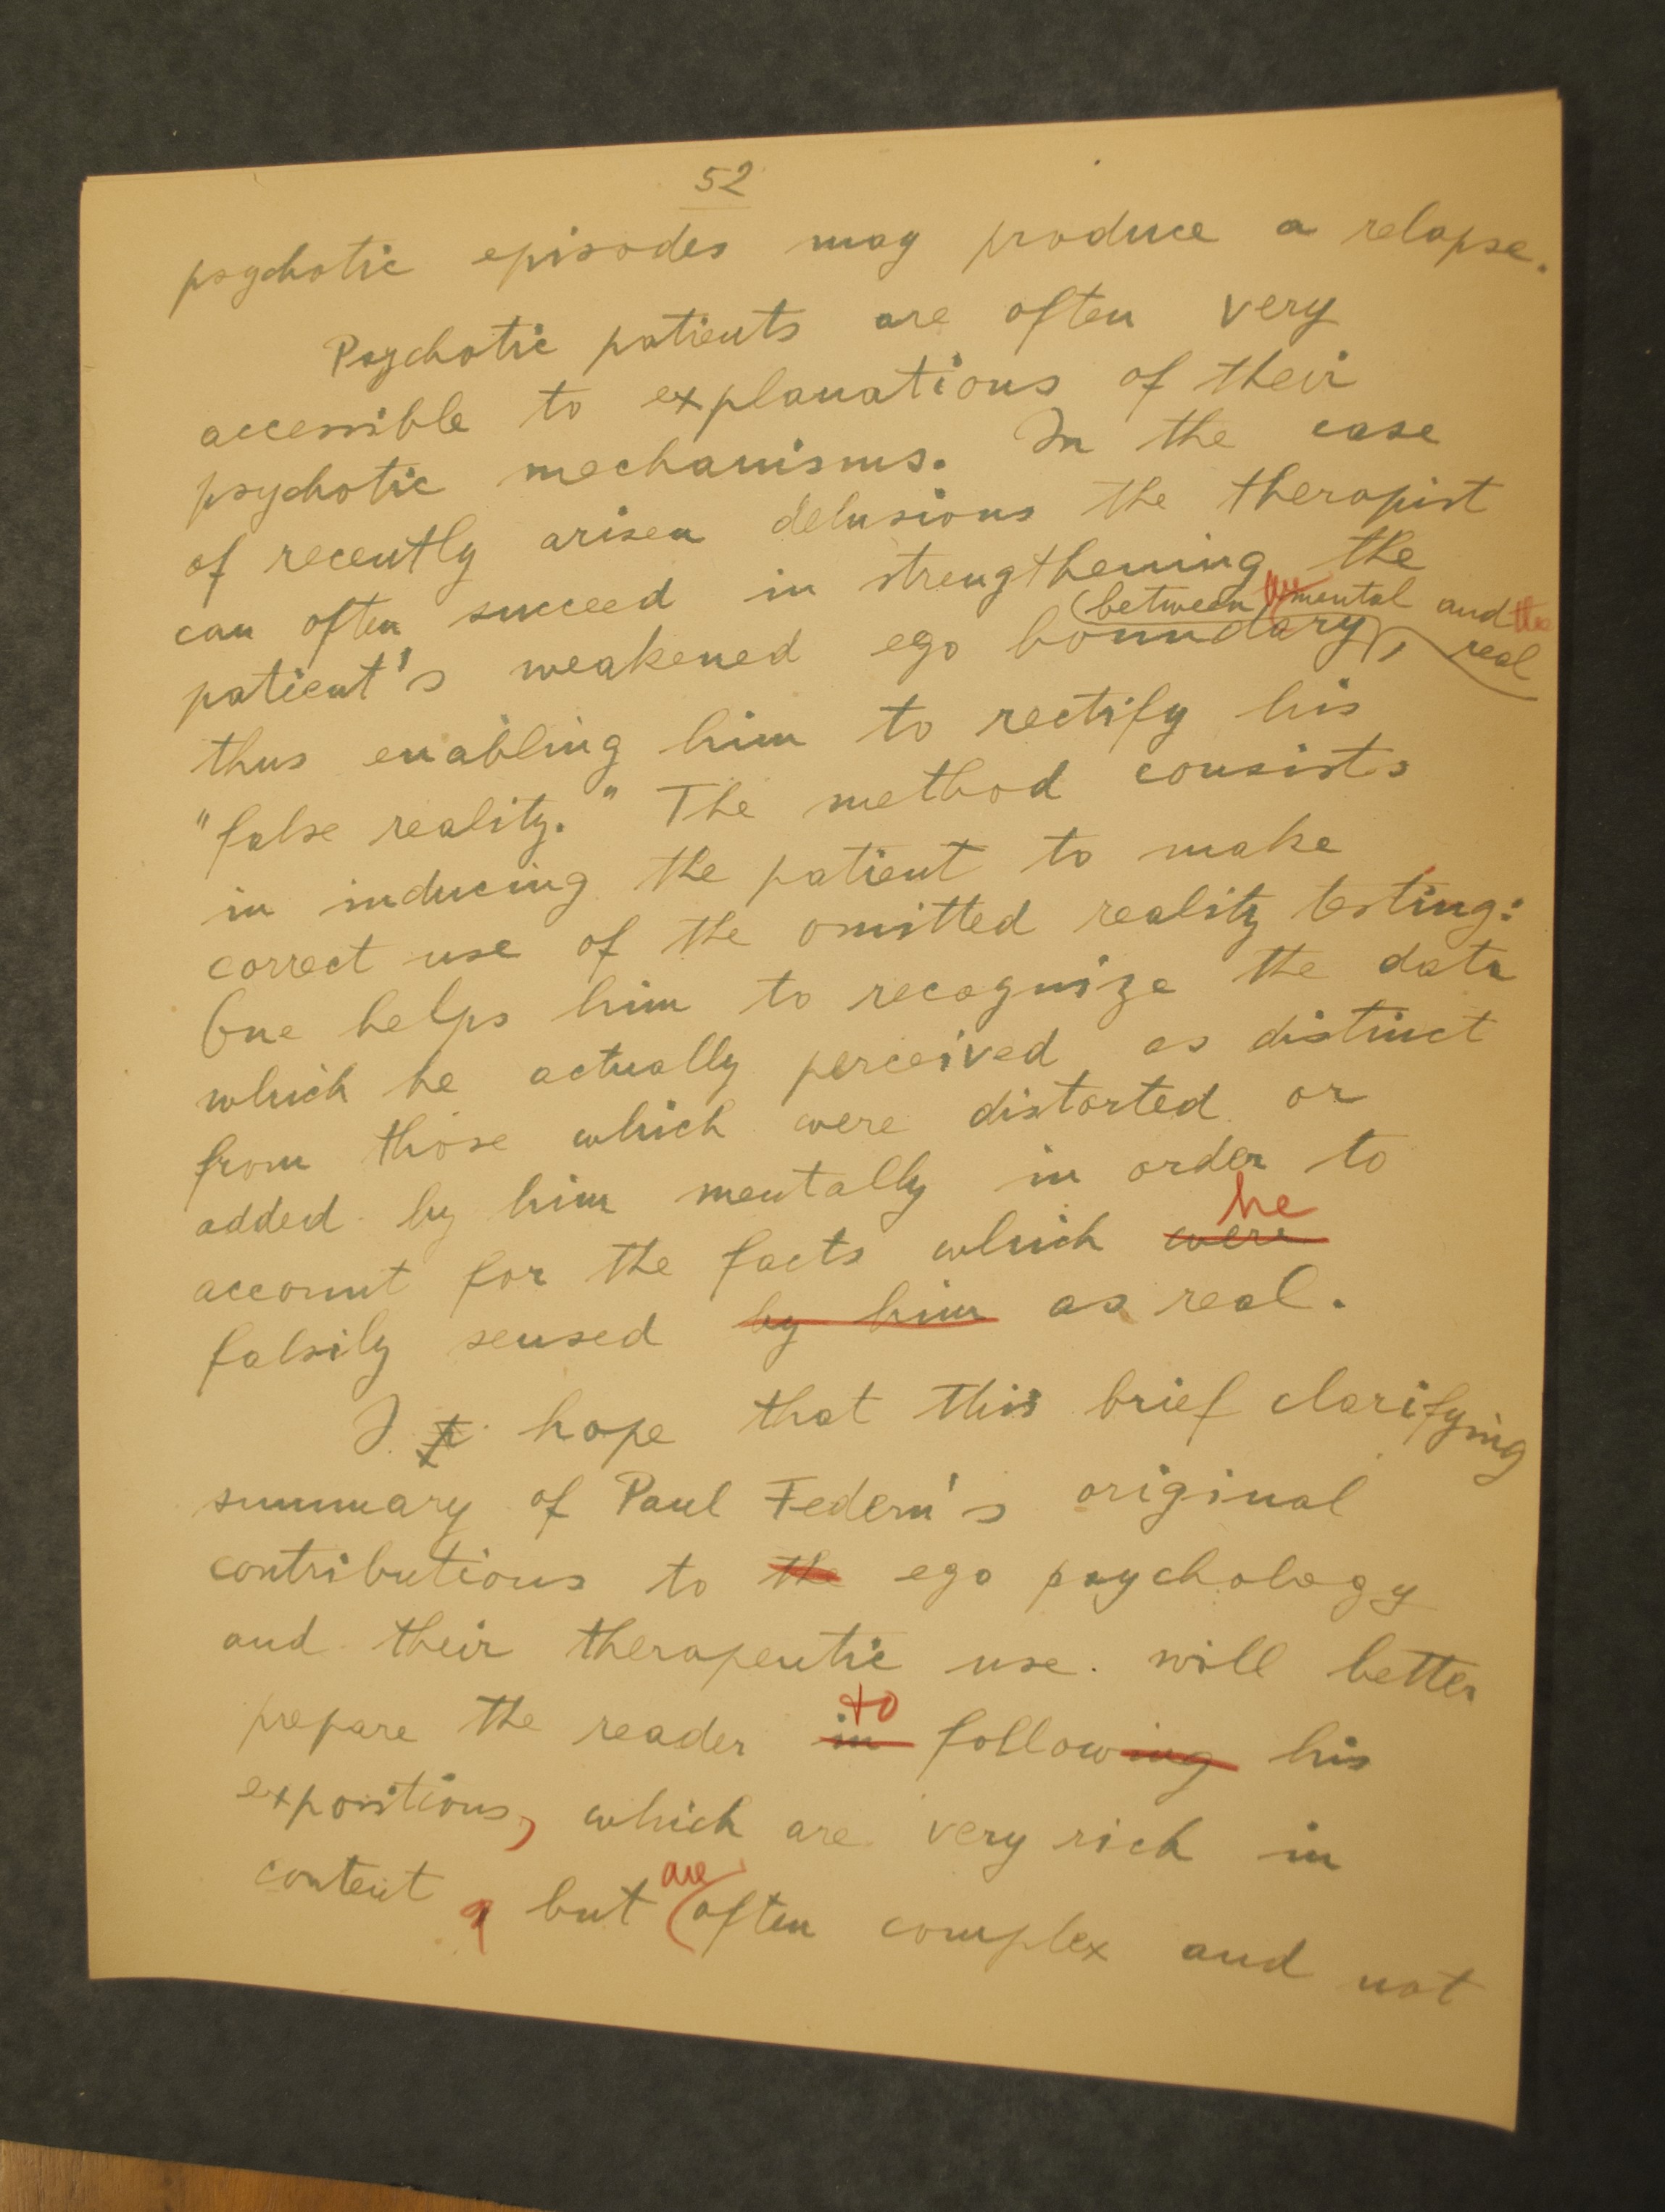 52
psychotic episodes may produce a relapse.
Psychotic patients are often very
accessible to explanations of their
psychotic mechanisms. In the case
of recently arisen delusions the therapist
can often succeed in strengthening the
between mental and the
patient's weakened ego boundary, real
thus enabling him to rectify his
"false reality." The method consists
in inducing the patient to make
correct use of the omitted reality testing:
One helps him to recognize the data
which he actually perceived as distinct
from those which were distorted or
added by him mentally in order to
he
account for the facts which were
falsily sensed by him as real.
I hope that this brief clarifying
summary of Paul Federn's original
contributions to the ego psychology
and their therapeutic use will better
to
prepare the reader in following his
expositions, which are very rich in
are
content, but often complex and not